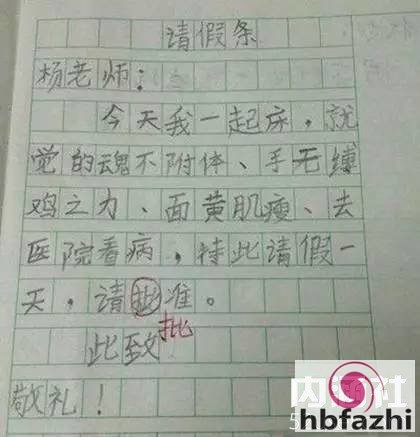 请假条
杨老师：
今天我一起床，就
觉的魂不附体、手无缚
鸡之力、面黄肌瘦、去
医院看病，特此请假一
天，请批准。
批
此致
敬礼！
hbfazhi